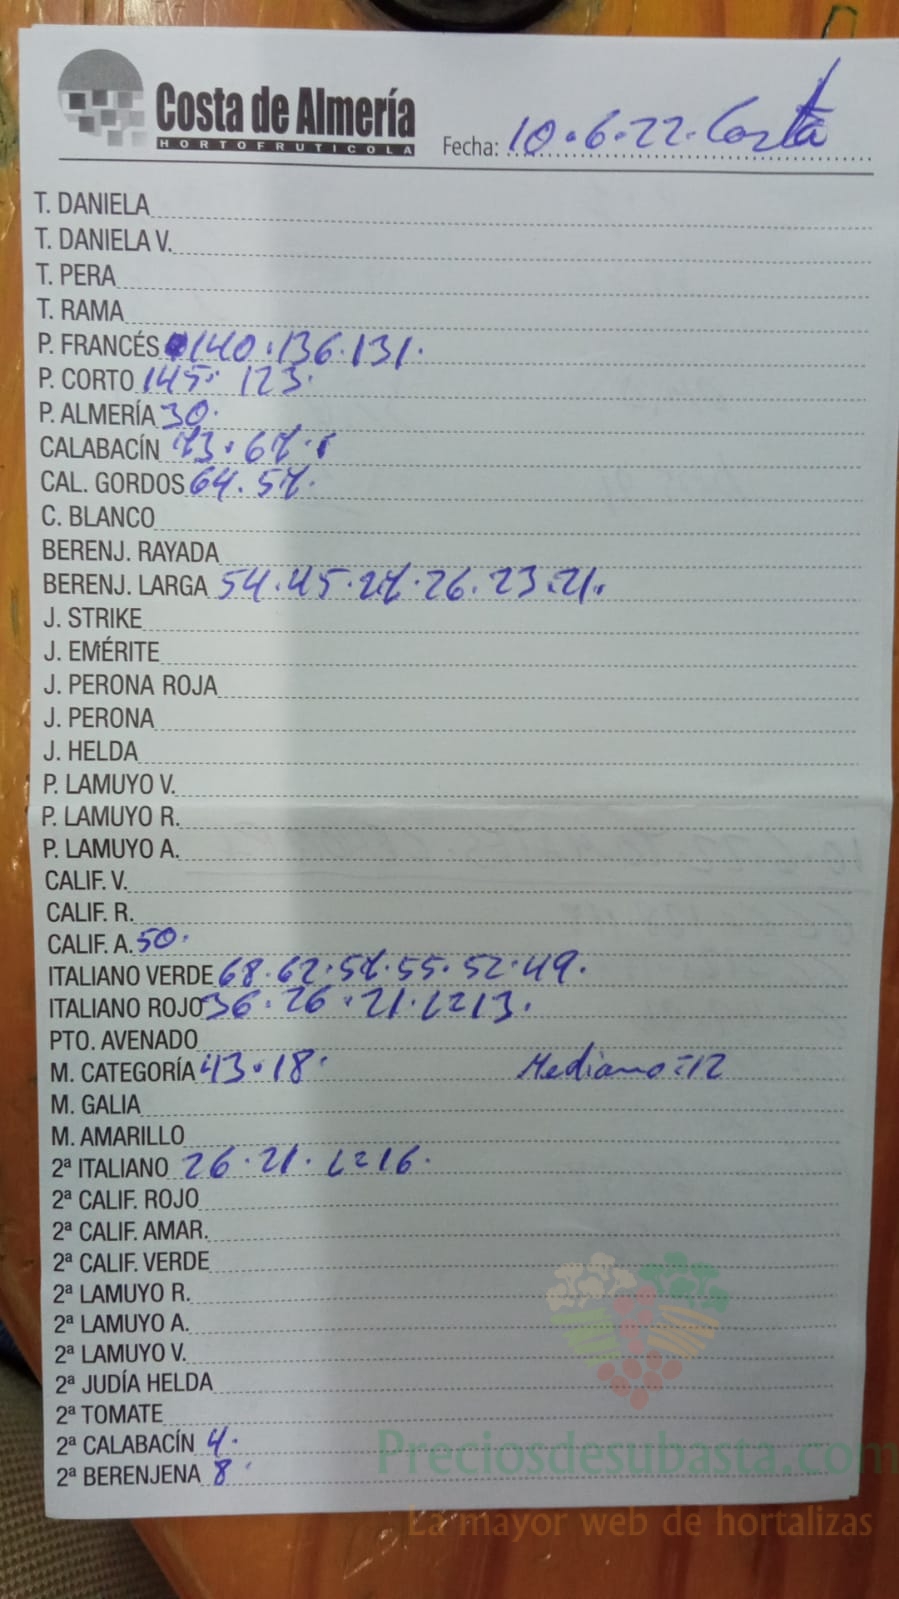 Costa de Almería
HORTOFRUTICOLA
Fecha: 10.6.22. Costa
T. DANIELA
T. DANIELA V.
T. PERA
T. RAMA
P. FRANCÉS 140.136.131.
P. CORTO 145. 123.
P. ALMERÍA 30.
CALABACÍN 73.67.
CAL. GORDOS 64.57.
C. BLANCO
BERENJ. RAYADA
BERENJ. LARGA 54.45.27.26.23.21.
J. STRIKE
J. EMÉRITE
J. PERONA ROJA
J. PERONA
J. HELDA
P. LAMUYO V.
P. LAMUYO R.
P. LAMUYO A.
CALIF. V.
CALIF. R.
CALIF. A. 50.
ITALIANO VERDE 68.62.57.55.52.49.
ITALIANO ROJO 36.26.21.L=13.
PTO. AVENADO
M. CATEGORÍA 43.18. Mediano=12
M. GALIA
M. AMARILLO
2ª ITALIANO 26.21. L=16.
2ª CALIF. ROJO
2ª CALIF. AMAR.
2ª CALIF. VERDE
2ª LAMUYO R.
2ª LAMUYO A.
2ª LAMUYO V.
2ª JUDÍA HELDA
2ª TOMATE
2ª CALABACÍN 4.
2ª BERENJENA 8.
Preciosdesubasta.com
La mayor web de hortalizas